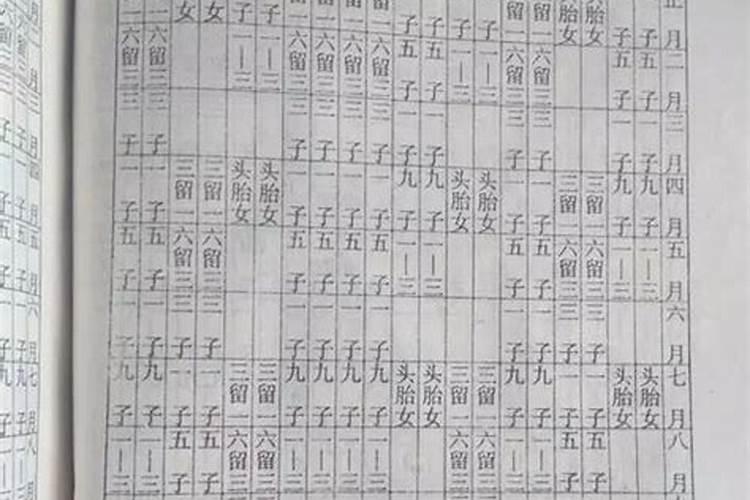 正月二月三月四月五月六月七月八月
子五子一子九子一｜三头胎女
子五子一子九子一｜三头胎女
胎女三留一六留三三子一子五子
胎女三留一六留三三子一子五子
留一六留三三子一子五子一子九子一｜三
留一六留三三子一子五子一子九子一｜三
子一｜三头胎女三留一六留三
子一｜三头胎女三留一六留三
子五子一子九子一｜三头胎女
子五子一子九子一｜三头胎女
留一六留三三子一子五子一子九子一｜三
留一六留三三子一子五子一子九子一｜三
留一六留三三子一子五子一子九子一｜三
留一六留三三子一子五子一子九子一｜三
子一｜三头胎女三留一六留三
子一｜三头胎女三留一六留三
女三留一六留三三子一子五子
女三留一六留三三子一子五子
一六留三三子一子五子一子九子一｜三
一六留三三子一子五子一子九子一｜三